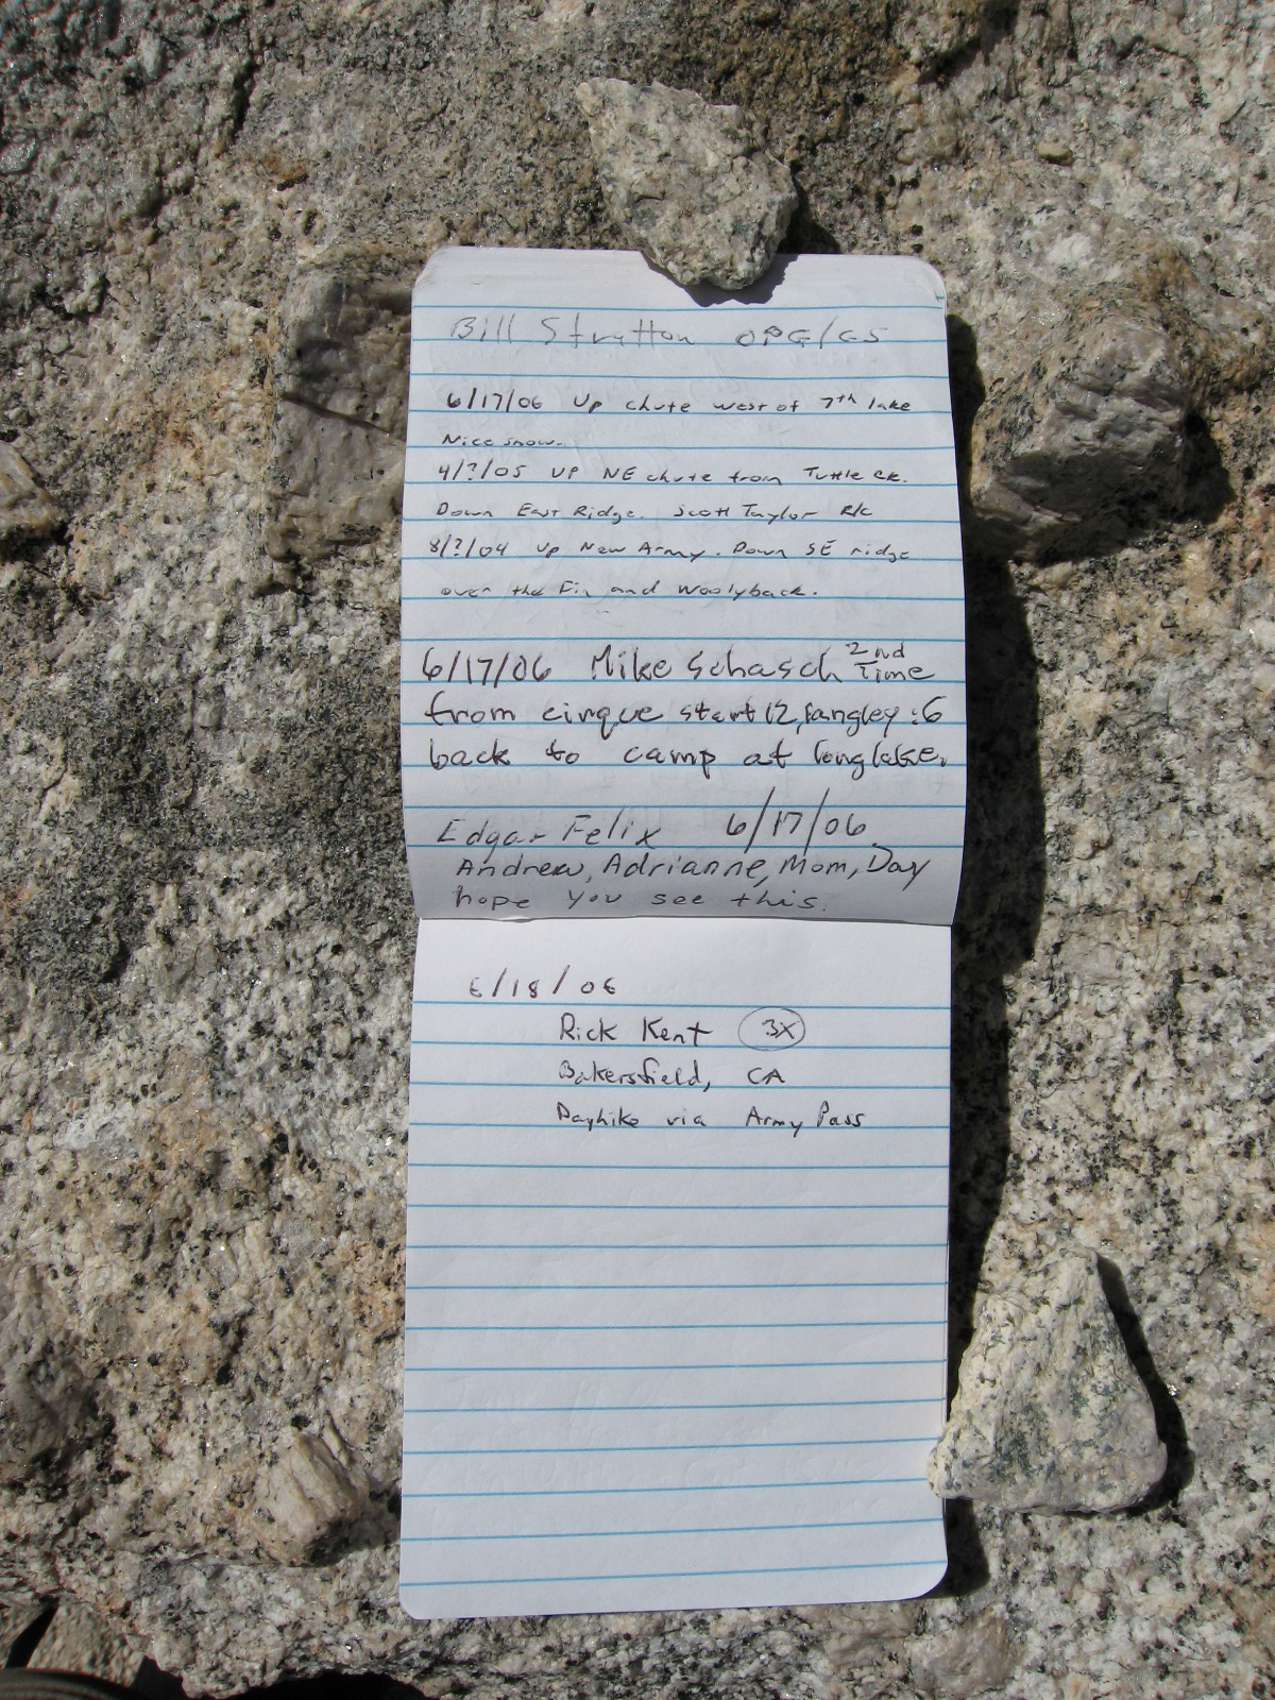 Bill Stratton OPG/GS
6/17/06 Up chute west of 7th lake
Nice snow.
4/?/05 UP NE chute from Tuttle Ck.
Down East Ridge. Scott Taylor R/C
8/?/04 Up New Army. Down SE ridge
over the Fin and Woolyback.
6/17/06 Mike Schasch 2nd Time
from cirque start 12, :6
back to camp at long lake.
Edgar Felix 6/17/06
Andrew, Adrianne, Mom, Day
hope you see this.
6/18/06
Rick Kent 3X
Bakersfield, CA
Dayhike via Army Pass